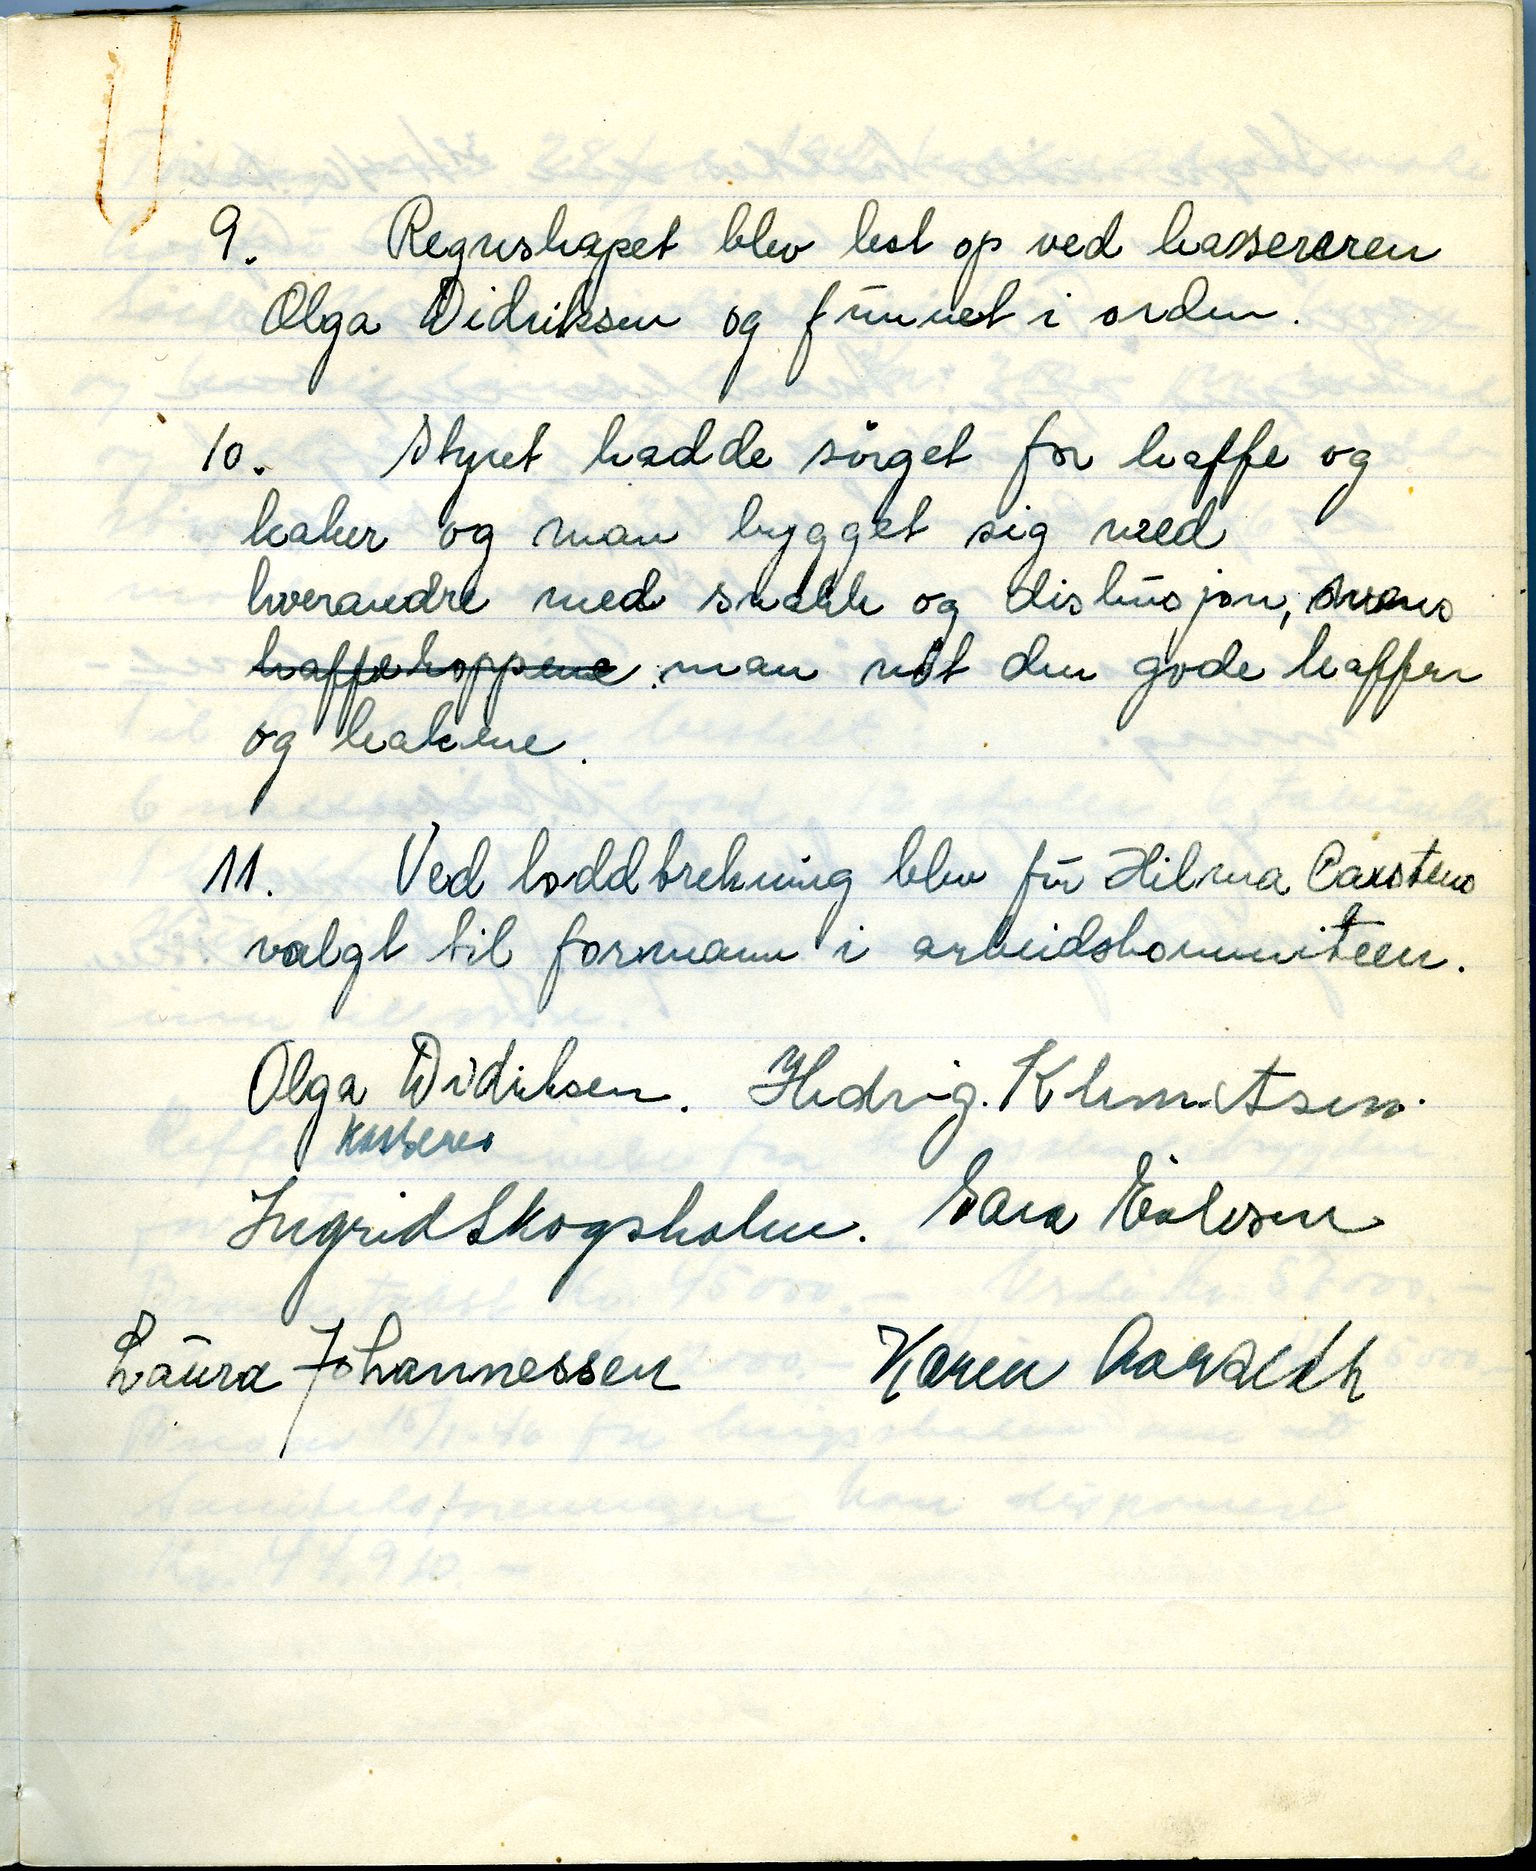 9. Regnskapet blev lest op ved kassereren
Olga Didriksen og funnet i orden.
10. Styret hadde sörget for kaffe og
kaker og man hygget sig med
hverandre med snakk og diskusjon, mens
kaffekoppene man nöt den gode kaffen
og kakene.
11. Ved loddtrekning blev fru Hilma Carstens
valgt til formann i arbeidskommiteen.
Olga Didriksen. Hedvig. Klemetsen.
kasserer
Ingrid Skogsholm. Sara Eriksen
Laura Johannessen Karen